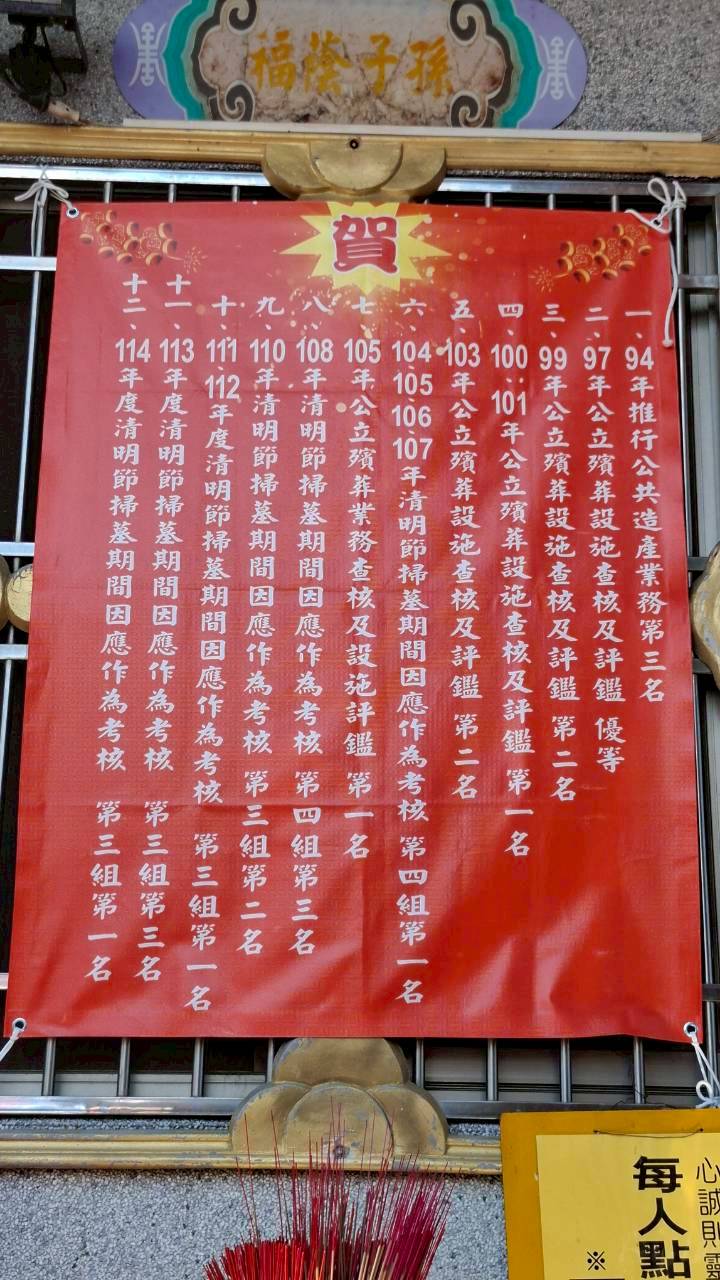 孫子蔭福
賀
一、94年推行公共造產業務第三名
二、97年公立殯葬設施查核及評鑑 優等
三、99年公立殯葬設施查核及評鑑 第二名
四、100、101年公立殯葬設施查核及評鑑 第一名
五、103年公立殯葬設施查核及評鑑 第二名
六、104、105、106、107年清明節掃墓期間因應作為考核 第四組第一名
七、105年公立殯葬業務查核及設施評鑑 第一名
八、108年清明節掃墓期間因應作為考核 第四組第三名
九、110年清明節掃墓期間因應作為考核 第三組第二名
十、111、112年度清明節掃墓期間因應作為考核 第三組第一名
十一、113年度清明節掃墓期間因應作為考核 第三組第三名
十二、114年度清明節掃墓期間因應作為考核 第三組第一名
心誠則靈
每人點
※